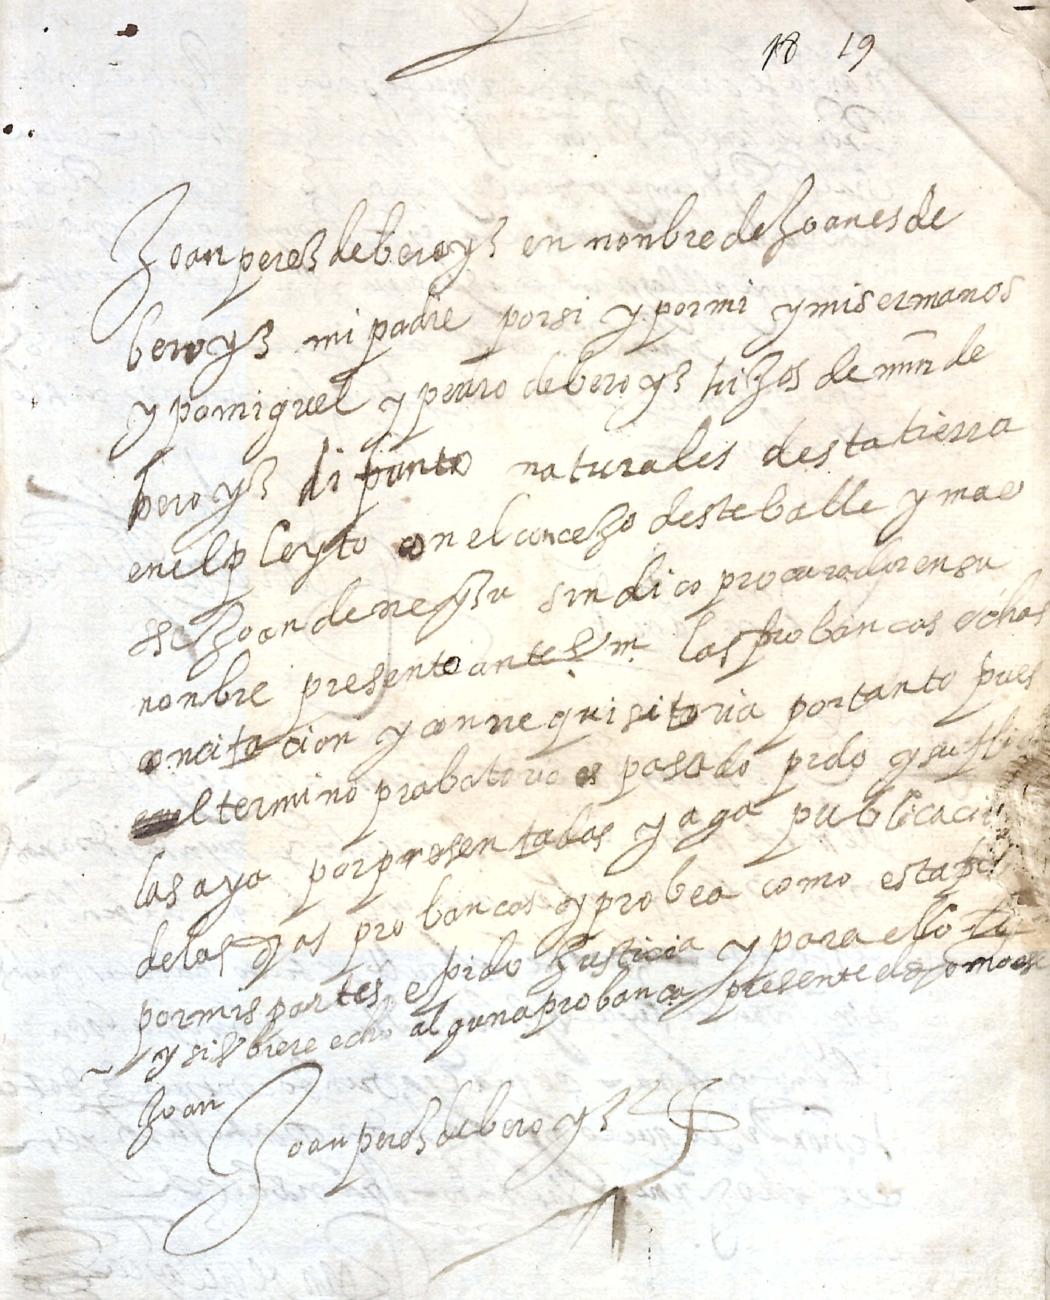 18 19
Joan perez de beroyz en nonbre de Joanes de
beroyz mi padre por si y por mi y mis ermanos
y por miguel y pedro de beroyz hijos de mrn de
beroyz difunto naturales desta tierra
en el pleyto con el concejo deste balle y
Joan de neyzu sindico procurador en su
nonbre presento ante V m. las probancas echas
con citacion y con rrequisitoria por tanto pues
el termino probatorio es pasado pido y
las aya por presentadas y aga publicacion
de las dhas probancas y probea como esta
por mis partes e pido Justicia y para ello
y si Vbiere echo alguna probanca presente el dho
Joan
Joan perez de beroyz